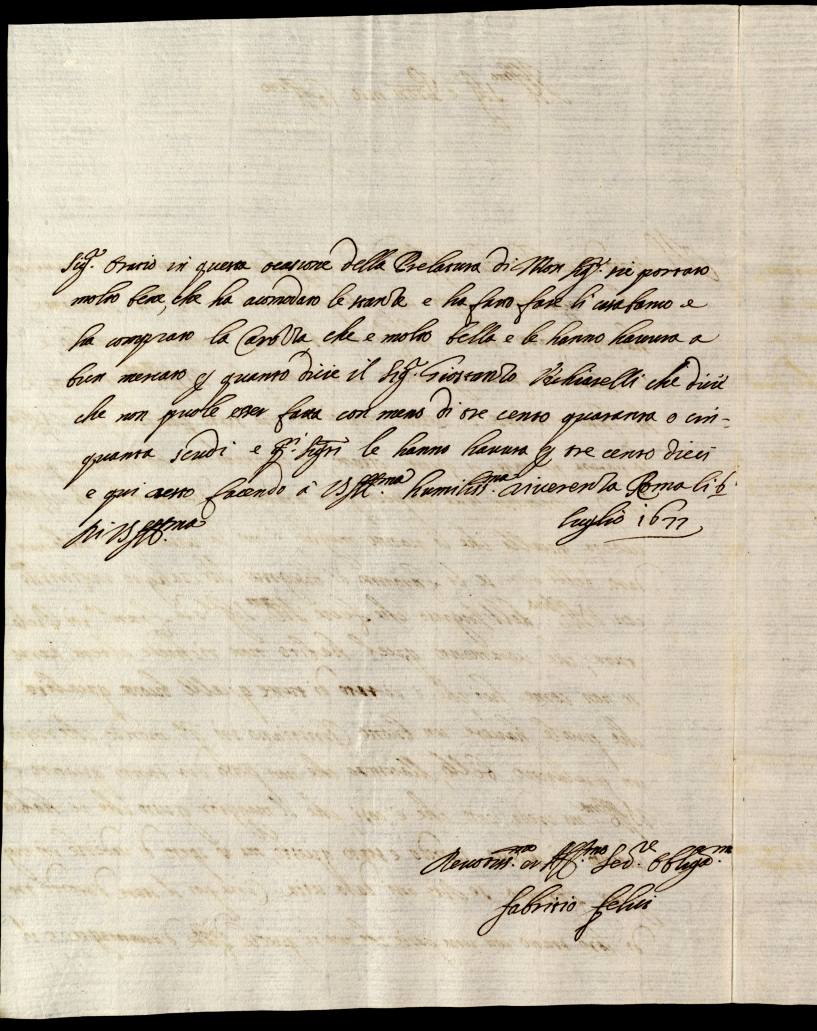 Sig.r Oratio in questa ocasione della Prelatura di Mon Sig.r si è portato
molto bene, che ha acomodato le stantie e ha fatto fare li
ha comprato la Carozza, che e molto bella e le hanno havuta a
bon mercato p quanto dicie il Sig.r Chiarelli che dicie
che non puole esser fatta con meno di tre cento quaranta o cin-
quanta scudi e q.i Sig.ri le hanno havuta p tre cento dieci
e qui resto facendo à V.S. Ill.ma humiliss.ma riverentia Roma li 6
Luglio 1677
Di V.S. Ill.ma
Devotiss.mo et Aff.mo Ser.re Obliga.m
Fabritio Felici